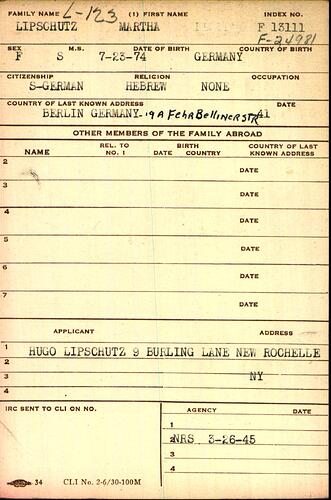 FAMILY NAME L-123 (1) FIRST NAME INDEX NO.
LIPSCHUTZ MARTHA F 13111
F-24981
SEX M.S. DATE OF BIRTH COUNTRY OF BIRTH
F S 7-23-74 GERMANY
CITIZENSHIP RELIGION OCCUPATION
S-GERMAN HEBREW NONE
COUNTRY OF LAST KNOWN ADDRESS DATE
BERLIN GERMANY-19A FehrBellinerstr 41
OTHER MEMBERS OF THE FAMILY ABROAD
NAME REL. TO NO. 1 BIRTH DATE COUNTRY COUNTRY OF LAST KNOWN ADDRESS
2 DATE
3 DATE
4 DATE
5 DATE
6 DATE
7 DATE
APPLICANT ADDRESS
1 HUGO LIPSCHUTZ 9 BURLING LANE NEW ROCHELLE
2
3 NY
4
IRC SENT TO CLI ON NO. AGENCY DATE
1
2 NRS 3-26-45
3
4
34 CLI No. 2-6/30-100M